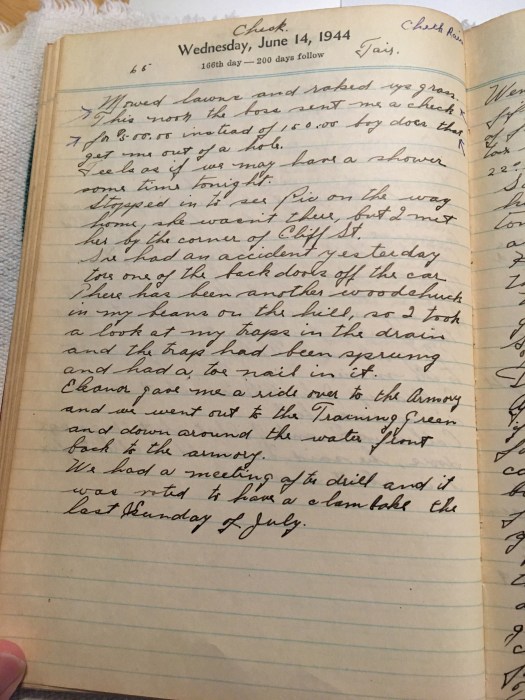 Check.
Check Rain
Wednesday, June 14, 1944
166th day — 200 days follow
65
Fair.
Mowed lawns and raked rye grass.
This noon the boss sent me a check
for $500.00 instead of 100.00 boy does that
get me out of a hole.
Feels as if we may have a shower
some time tonight.
Stopped in to see Piv on the way
home, she wasn't there, but I met
her by the corner of Cliff St.
She had an accident yesterday
tore one of the back doors off the car.
There has been another woodchuck
in my beans on the hill, so I took
a look at my traps in the drain
and the trap had been sprung
and had a toe nail in it.
Eleanor gave me a ride over to the Armory
and we went out to the Training Green
and down around the water front
back to the armory.
We had a meeting after drill and it
was voted to have a clam bake the
last Sunday of July.